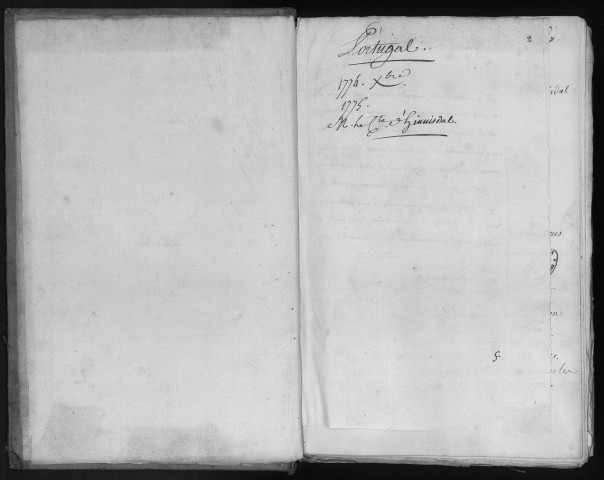 Portugal.
1774. Xbre.
1775.
M. le Cte. d'hinnisdal.